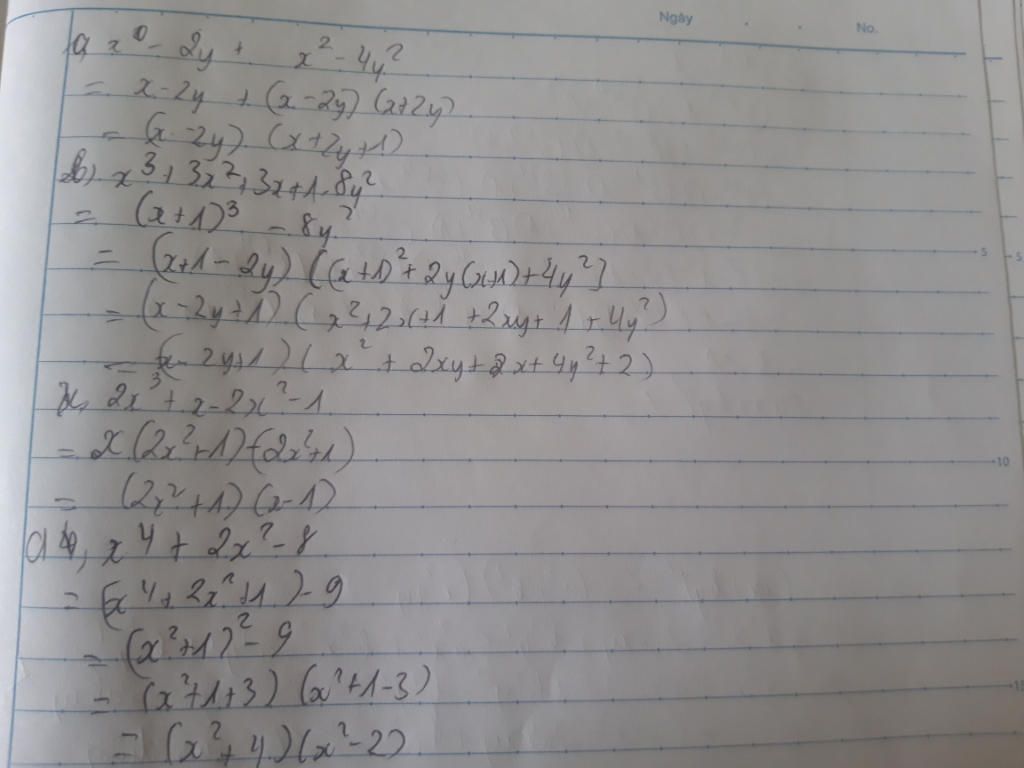 Ngày . . No.
a x - 2y + x² - 4y²
= x - 2y + (x - 2y) (x+2y)
= (x - 2y) (x+2y+1)
b) x³ + 3x² + 3x + 1 - 8y²
= (x+1)³ - 8y²
= (x+1 - 2y) ((x+1)² + 2y(x+1) + 4y²]
= (x - 2y + 1) ( x² + 2x + 1 + 2xy + 1 + 4y²)
= (x - 2y + 1) ( x² + 2xy + 2x + 4y² + 2)
2x³ + x - 2x² - 1
= x(2x² + 1) - (2x² + 1)
= (2x² + 1) (x - 1)
x⁴ + 2x² - 8
= (x⁴ + 2x² + 1) - 9
= (x² + 1)² - 9
= (x² + 1 + 3) (x² + 1 - 3)
= (x² + 4) (x² - 2)
5
5
10